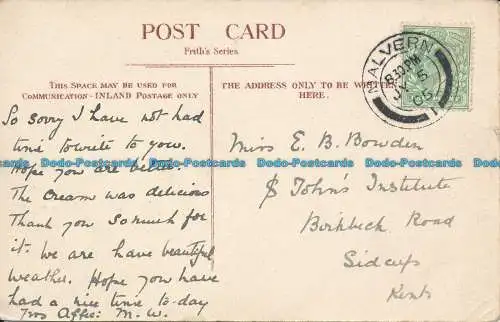 POST CARD
Frith's Series.
THIS SPACE MAY BE USED FOR
COMMUNICATION - INLAND POSTAGE ONLY
THE ADDRESS ONLY TO BE WRITTEN
HERE.
MALVERN
8.30 PM
05
So sorry I have not had
time to write to you.
Hope you are better.
The cream was delicious
Thank you so much for
it. We are have beautiful
weather. Hope you have
had a nice time to-day
Yrs Affec: M. W.
Miss E. B. Bowden
St John's Institute
Birkbeck Road
Sidcup
Kent
Dodo-Postcards Dodo-Postcards Dodo-Postcards Dodo-Postcards Dodo-Postcards